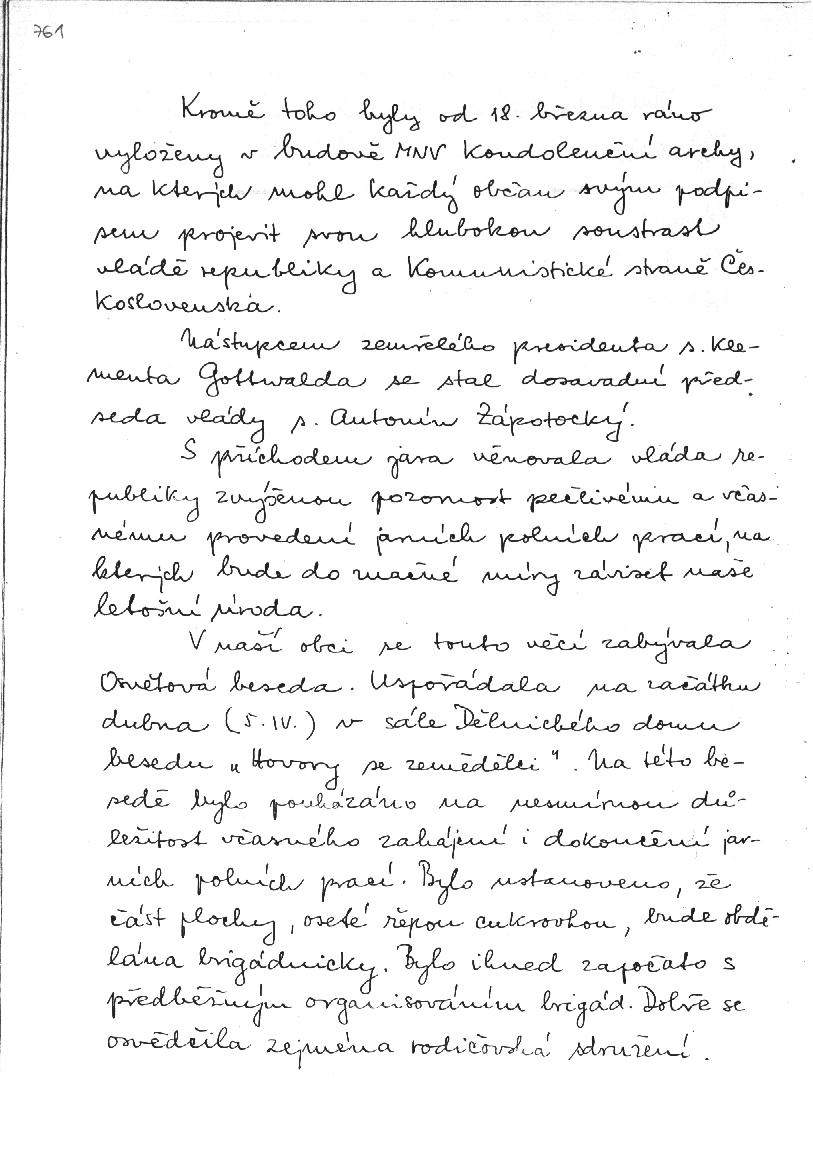 761
Kromě toho byly od 18. března ráno
vyloženy v budově MNV kondolenční archy,
na kterých mohl každý občan svým podpi-
sem projevit svou hlubokou soustrast
vládě republiky a Komunistické straně Čes-
koslovenska.
Nástupcem zemřelého presidenta s. Kle-
menta Gottwalda se stal dosavadní před-
seda vlády s. Antonín Zápotocký.
S příchodem jara věnovala vláda re-
publiky zvýšenou pozornost pečlivému a včas-
nému provedení jarních polních prací, na
kterých bude do značné míry záviset naše
letošní úroda.
V naší obci se touto věcí zabývala
Osvětová beseda. Uspořádala na začátku
dubna (5. IV.) v sále Dělnického domu
besedu „Hovory se zemědělci". Na této be-
sedě bylo poukázáno na nesmírnou dů-
ležitost včasného zahájení i dokončení jar-
ních polních prací. Bylo ustanoveno, že
část plochy, oseté řepou cukrovkou, bude obdě-
lána brigádnicky. Bylo ihned započato s
předběžným organisováním brigád. Dobře se
osvědčila zejména rodičovská sdružení.